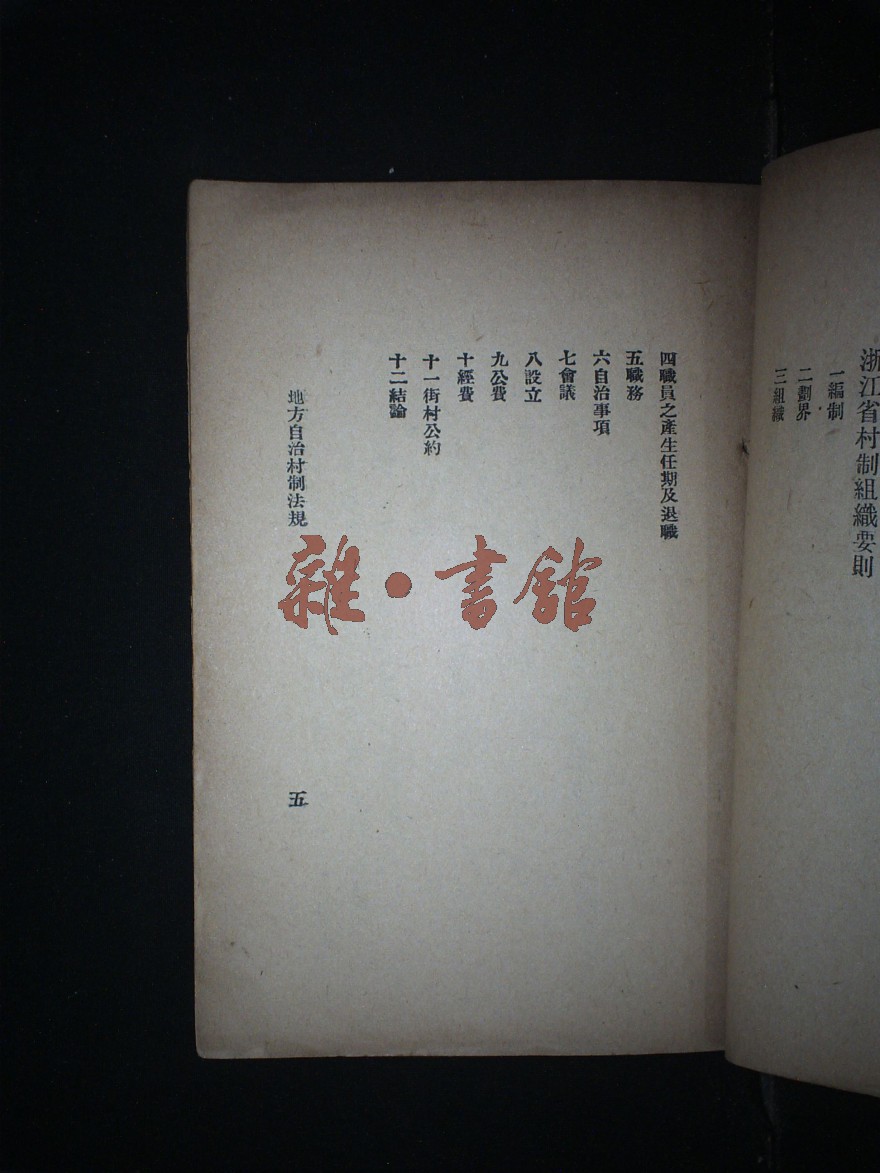 浙江省村制組織要則
一編制
二劃界
三組織
四職員之產生任期及退職
五職務
六自治事項
七會議
八設立
九公費
十經費
十一街村公約
十二結論
地方自治村制法規
五
雜·書館